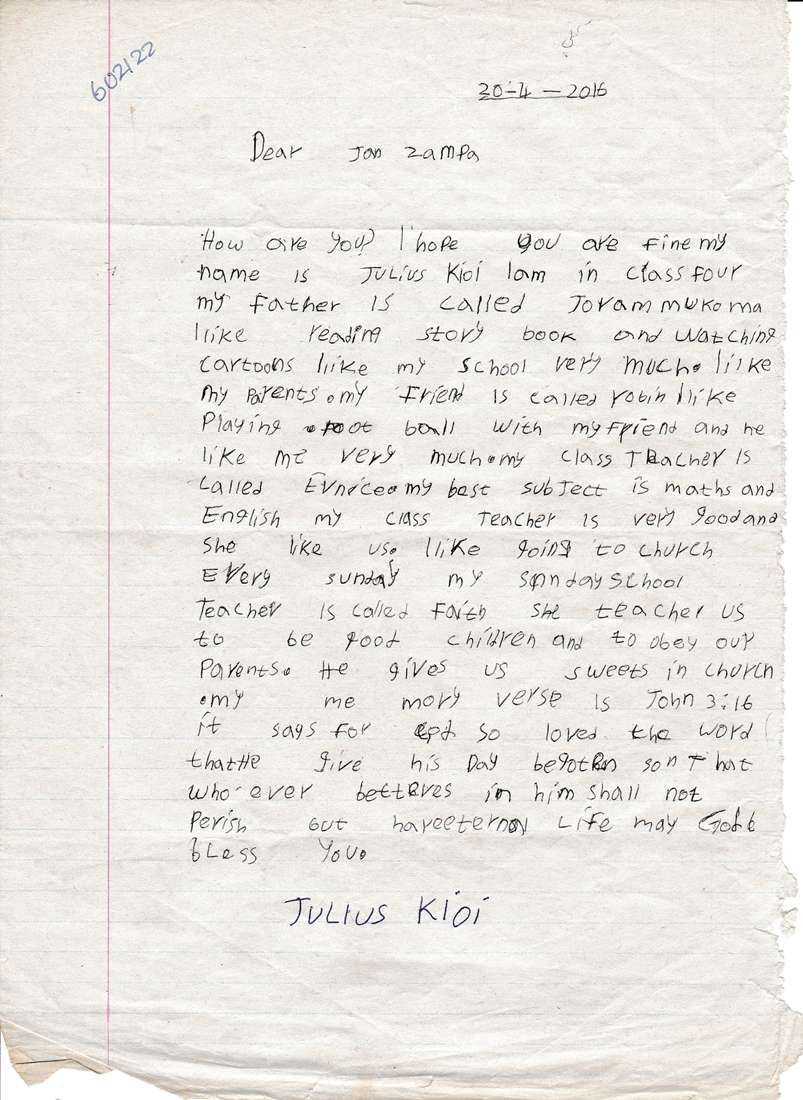 602122
20-4-2016
Dear Jan Zampa
How are you? I hope you are fine my
name is JULIUS KiOi Iam in class four
my father is called Joram mukoma
Ilike reading story book and watching
cartoons Ilike my school very much. Ilike
my parents. my friend is called robin Ilike
Playing foot ball with my friend and he
like me very much. my class Teacher is
called Evnice. my best subject is maths and
English my class teacher is very good and
she like us. Ilike going to church
Every sunday my sunday school
Teacher is called faith she teacher us
to be good children and to obey our
Parents. He gives us sweets in church
.my me mory verse is John 3:16
it says for God so loved the word
that He give his begotten son That
who-ever in him shall not
Perish but have eternal Life may God
bless you.
JULIUS KiOi